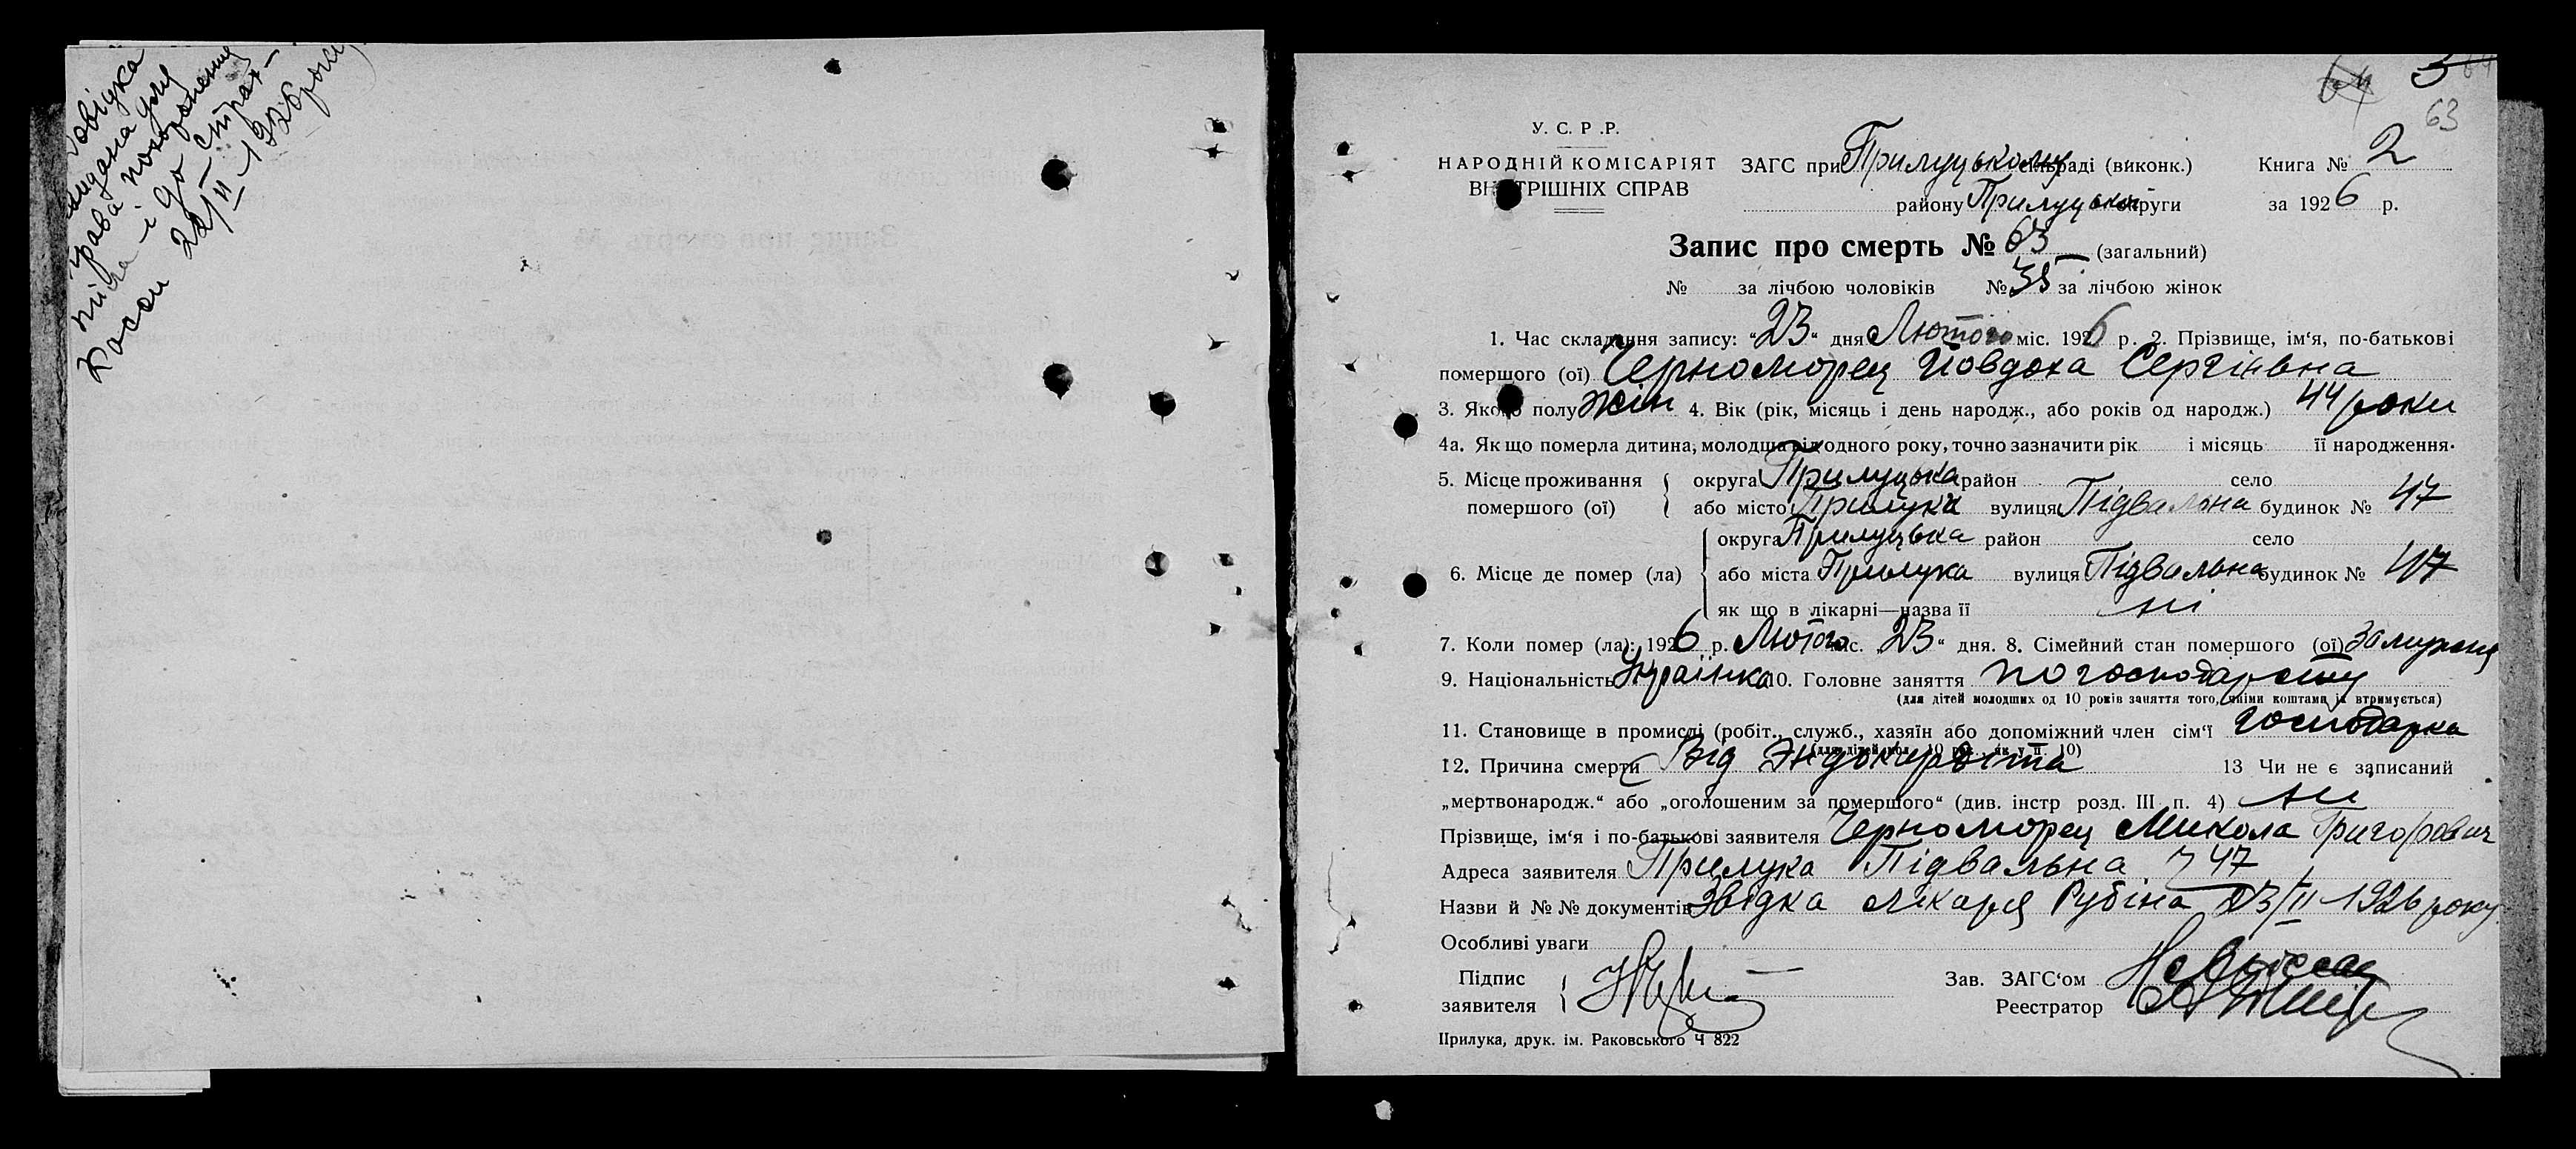 довідка
видана для
права похоронення
тіла і до страх-
каси 22/II-1926 року
63
У. С. Р .Р.
НАРОДНІЙ КОМІСАРІЯТ
ВНУТРІШНІХ СПРАВ
ЗАГС при Прилуцькому сільраді (виконк.) Книга № 2
району Прилуцької округи за 1926 р.
Запис про смерть № 63 (загальний)
№ за лічбою чоловіків № 35 за лічбою жінок
1. Час складання запису: "23" дня Лютого міс. 1926 р. 2. Прізвище, ім'я, по-батькові
помершого (ої) Черноморец Йовдоха Сергіївна
3. Якого полу Жін 4. Вік (рік, місяць і день народж., або років од народж.) 44 роки
4а. Як що померла дитина, молодша від одного року, точно зазначити рік і місяць її народження.
5. Місце проживання округа Прилуцька район село
помершого (ої) або місто Прилука вулиця Підвальна будинок № 47
округа Прилуцька район село
6. Місце де помер (ла) або міста Прилука вулиця Підвальна будинок № 47
як що в лікарні—назва її ні
7. Коли помер (ла): 1926 р. Лютого міс. „23" дня. 8. Сімейний стан помершого (ої) Замужня
9. Національність Українка 10. Головне заняття по господарству
(для дітей молодших од 10 років заняття того, чиїми коштами їх втримується)
11. Становище в промислі (робіт., служб., хазяїн або допоміжний член сім'ї господарка
(для дітей мол. 10 рок., як у п. 10)
12. Причина смерти Від Эндокардіта 13 Чи не є записаний
„мертвонародж." або „оголошеним за помершого" (див. інстр розд. III п. 4) ні
Прізвище, ім'я і по-батькові заявителя Черноморец Микола Григорович
Адреса заявителя Прилука Підвальна 47
Назви й № № документів Звідка лікаря Рубіна 23/II 1926 року
Особливі уваги
Підпис
заявителя
Зав. ЗАГС'ом
Реестратор
Прилука, друк. ім. Раковського Ч 822